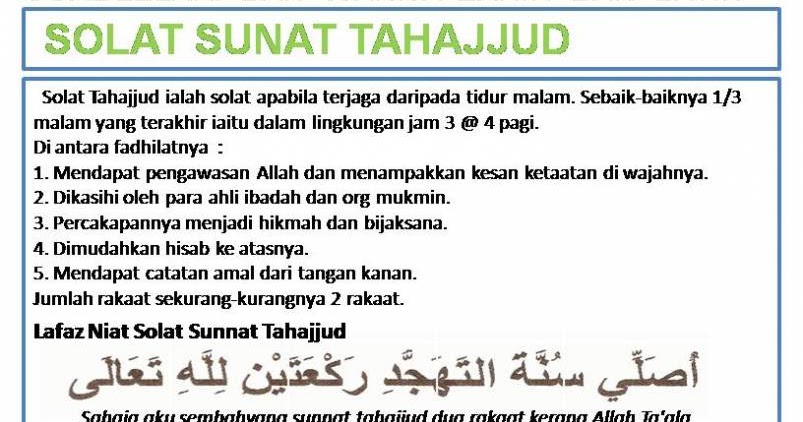 SOLAT SUNAT TAHAJJUD
Solat Tahajjud ialah solat apabila terjaga daripada tidur malam. Sebaik-baiknya 1/3
malam yang terakhir iaitu dalam lingkungan jam 3 @ 4 pagi.
Di antara fadhilatnya :
1. Mendapat pengawasan Allah dan menampakkan kesan ketaatan di wajahnya.
2. Dikasihi oleh para ahli ibadah dan org mukmin.
3. Percakapannya menjadi hikmah dan bijaksana.
4. Dimudahkan hisab ke atasnya.
5. Mendapat catatan amal dari tangan kanan.
Jumlah rakaat sekurang-kurangnya 2 rakaat.
Lafaz Niat Solat Sunnat Tahajjud
أُصَلِّي سُنَّةَ التَّهَجُّدِ رَكْعَتَيْنِ لِلَّهِ تَعَالَى
Sahaja aku sembahyang sunnat tahajjud dua rakaat kerana Allah Ta'ala